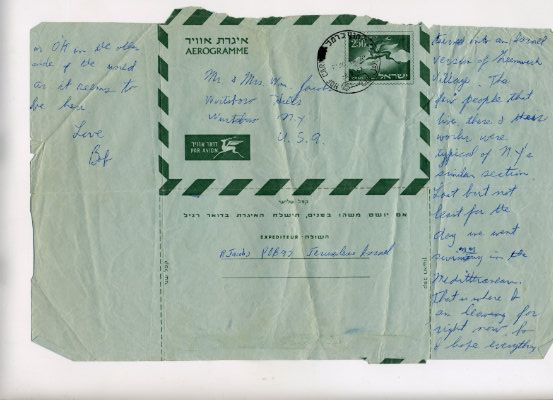 is OK on the other
side of the world
as it seems to
be here
Love
Bob
איגרת אויר
AEROGRAMME
250
ישראל
Mr. & Mrs. Wm.
Hills
N.Y
U.S.A.
דואר אויר
PAR AVION
קפל שלישי
אם יושם משהו בפנים, תישלח האיגרת בדואר רגיל
השולח-EXPEDITEUR
Jerusalem Israel
קפל שני
קפל ראשון
turned into an Israel
version of Greenwich
Village. The
few people that
live there & their
works were
typical of N.Y's
similar section.
Last but not
least for the
day we went
swimming in the
Mediterranean.
That is where I
am leaving for
right now. So
I hope everything